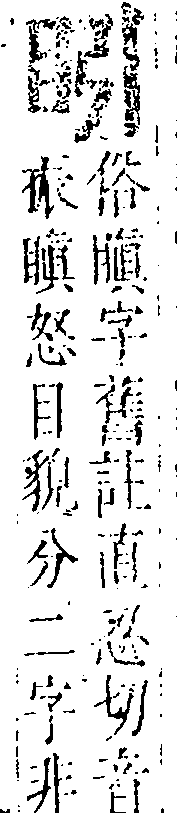 䀕
俗瞋字舊註直忍切音
瞋怒目貌分二字非